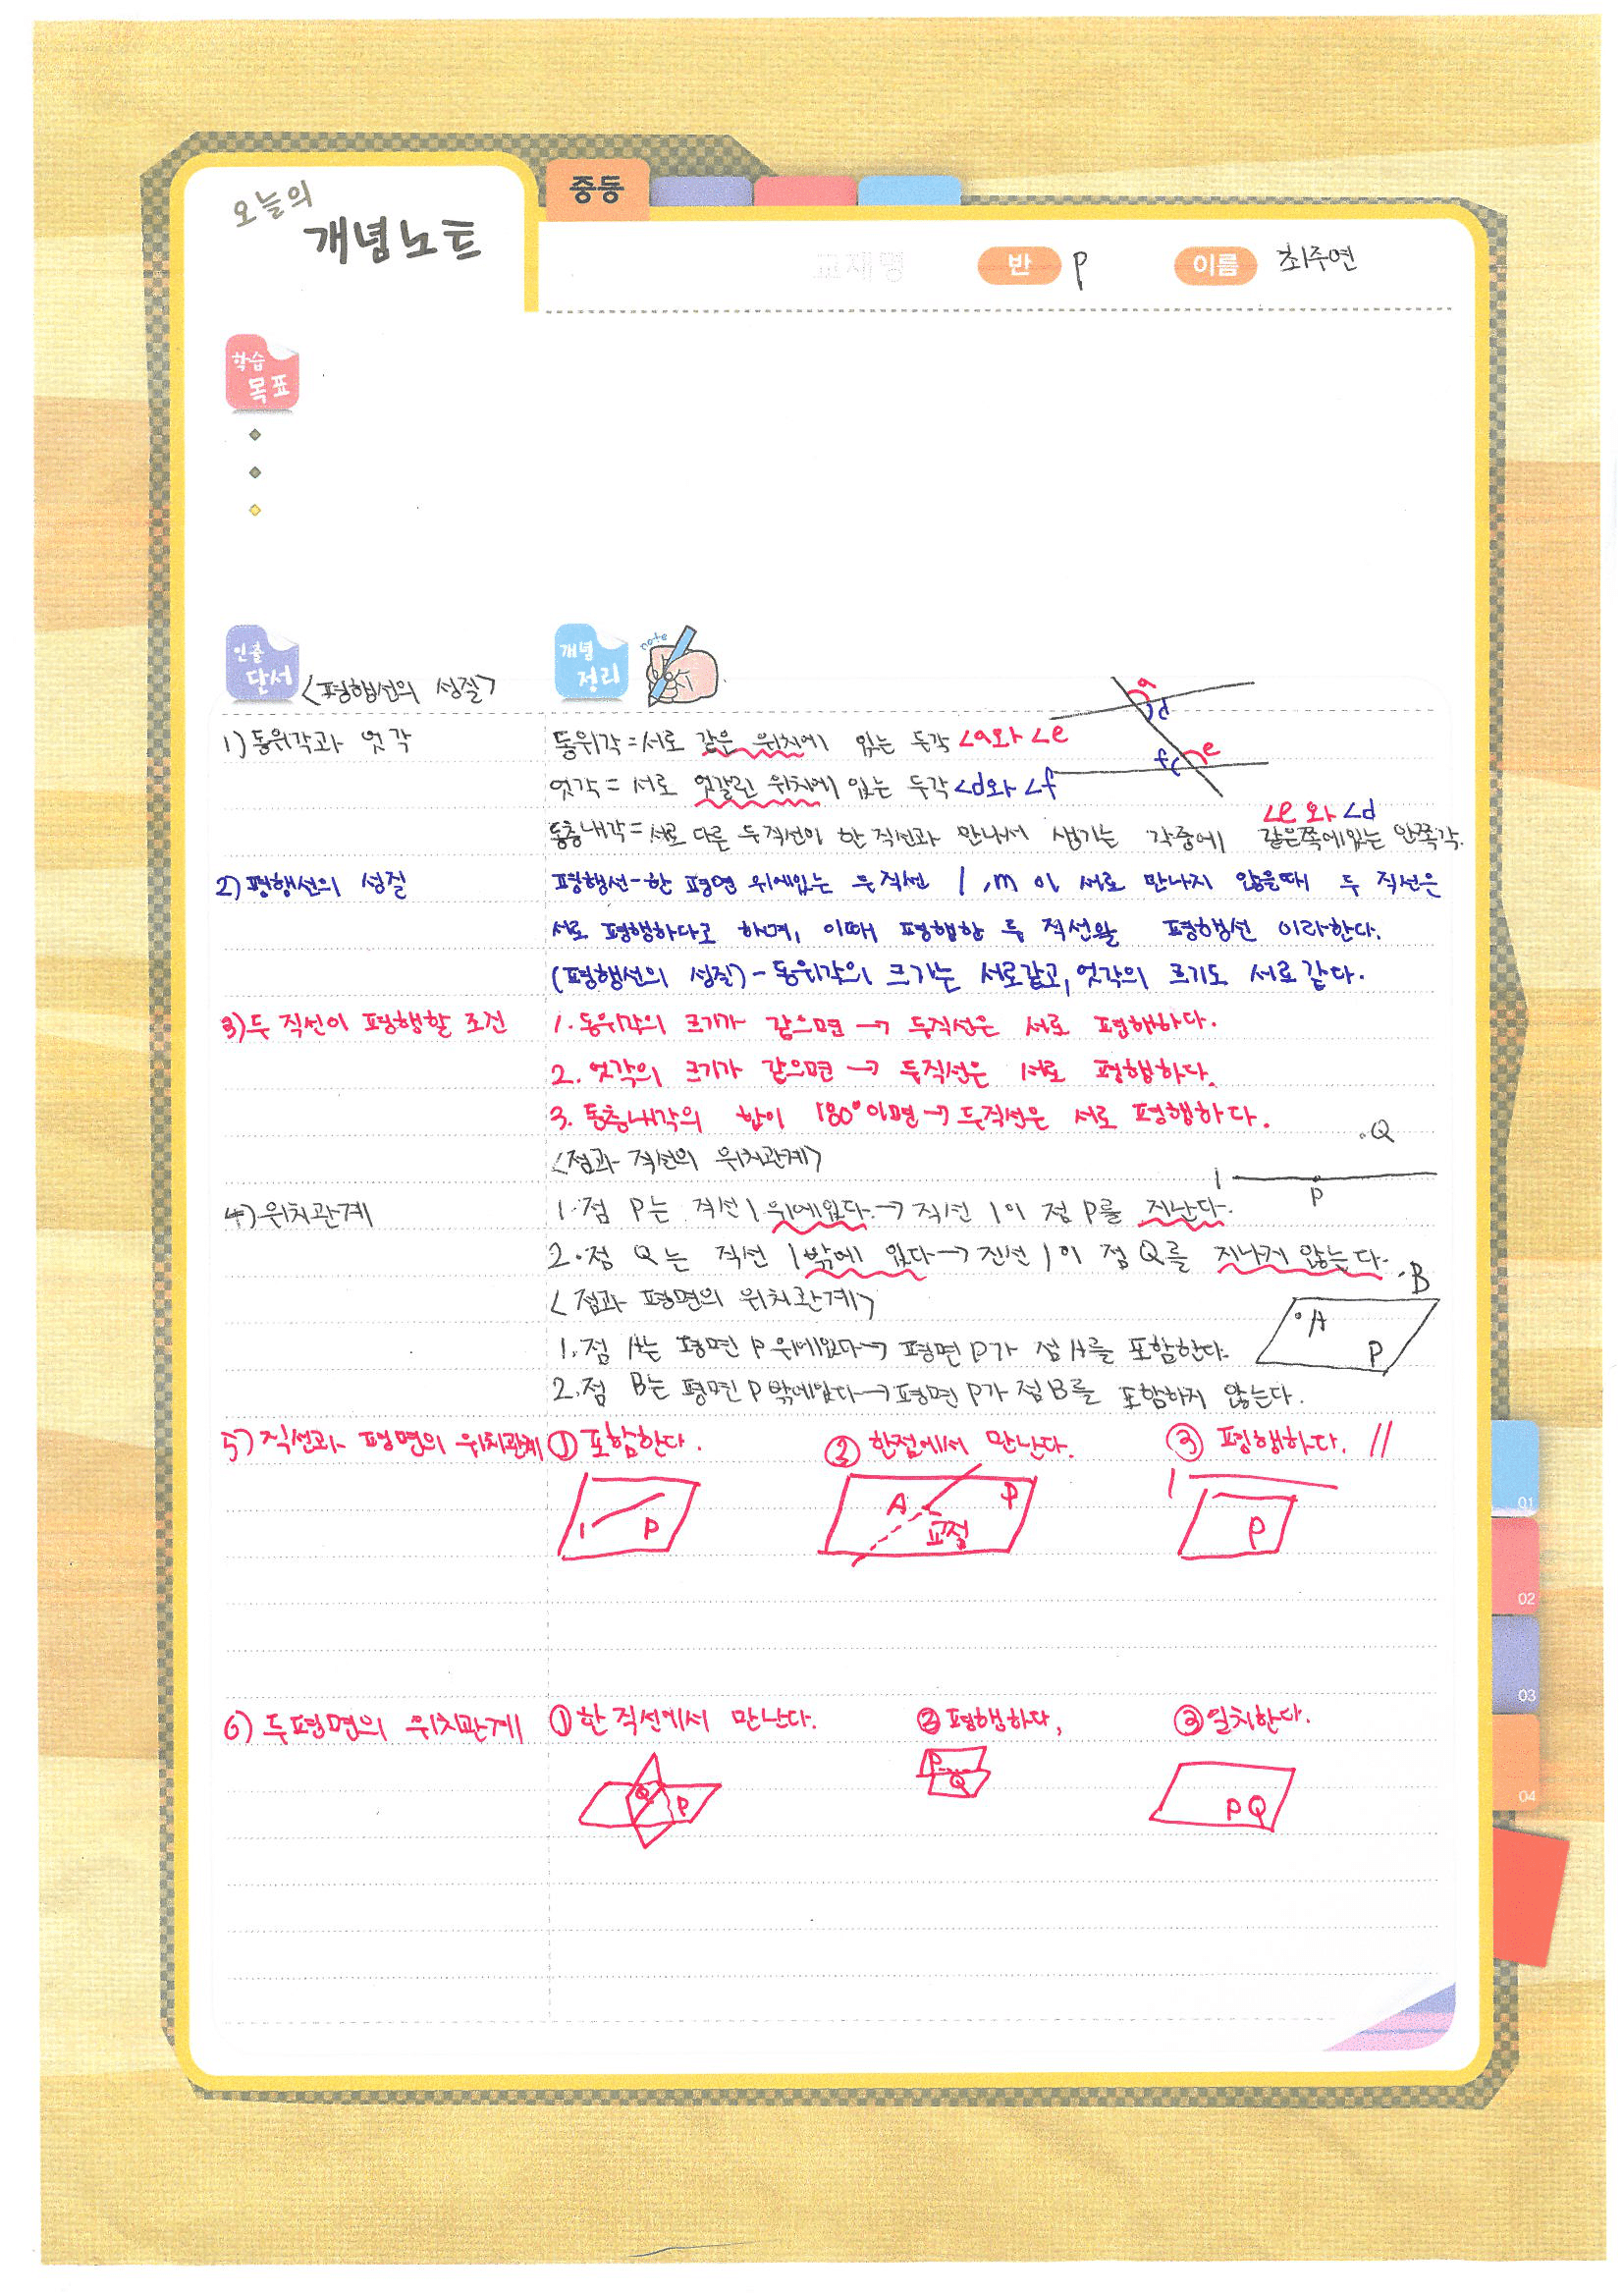 오늘의
개념노트
중등
교재명 반 P 이름 최주연
학습
목표
인출
단서 <평행선의 성질>
note
개념
정리
a
d
f
e
1) 동위각과 엇각
동위각=서로 같은 위치에 있는 두각 ∠a와 ∠e
엇각= 서로 엇갈린 위치에 있는 두각 ∠d와 ∠f
∠e 와 ∠d
동층내각=서로 다른 두직선이 한 직선과 만나서 생기는 각중에 같은쪽에있는 안쪽각.
2) 평행선의 성질
평행선-한 평면 위에있는 두직선 l, m이 서로 만나지 않을때 두 직선은
서로 평행하다고 하며, 이때 평행한 두 직선을 평행선 이라한다.
(평행선의 성질) - 동위각의 크기는 서로같고, 엇각의 크기도 서로 같다.
3) 두 직선이 평행할 조건
1. 동위각의 크기가 같으면 → 두직선은 서로 평행하다.
2. 엇각의 크기가 같으면 → 두직선은 서로 평행하다.
3. 동층내각의 합이 180°이면 → 두직선은 서로 평행하다.
<점과 직선의 위치관계>
Q
l
P
4) 위치관계
1. 점 P는 직선 l 위에있다. → 직선 l이 점 P를 지난다.
2. 점 Q는 직선 l 밖에 있다 → 진선 l이 점 Q를 지나지 않는다.
<점과 평면의 위치관계>
B
A
P
1. 점 A는 평면 P위에있다 → 평면 P가 점A를 포함한다.
2. 점 B는 평면 P밖에있다 → 평면 P가 점B를 포함하지 않는다.
5) 직선과 평면의 위치관계 ① 포함한다. ② 한점에서 만난다. ③ 평행하다. //
l P
A P
교점
l
P
6) 두평면의 위치관계 ① 한직선에서 만난다. ② 평행하다, ③ 일치한다.
Q P
P
Q
P Q
01
02
03
04